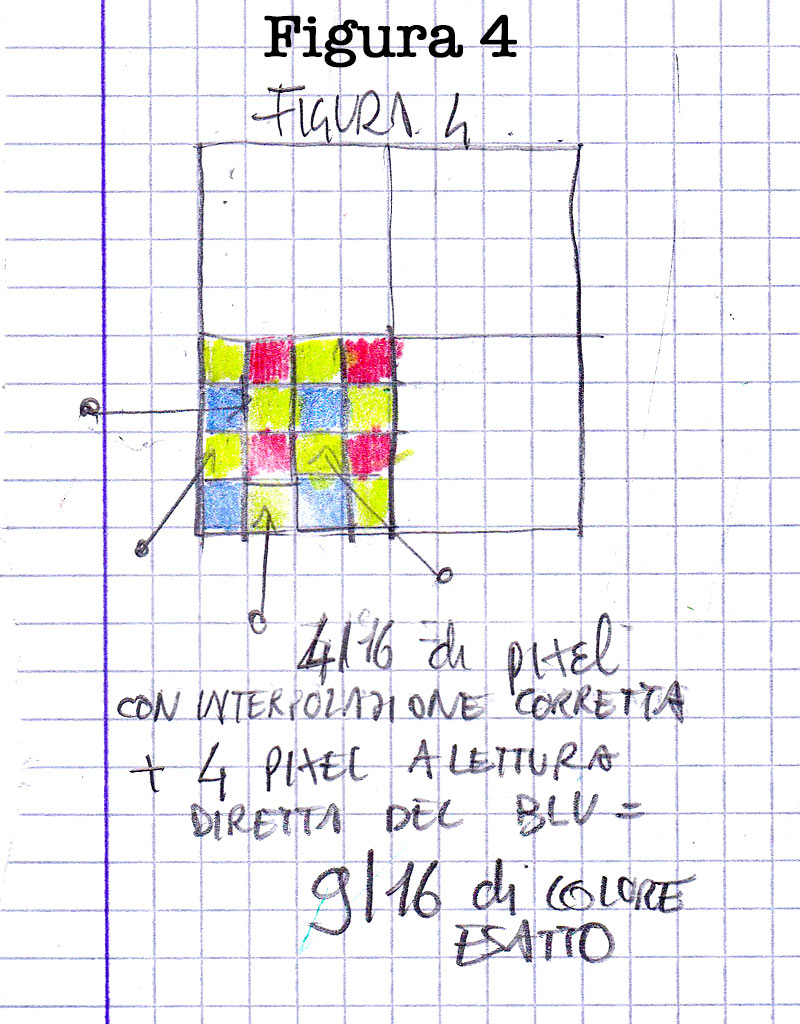 Figura 4
FIGURA 4
4/16 di pixel
CON INTERPOLAZIONE CORRETTA
+ 4 PIXEL A LETTURA
DIRETTA DEL BLU =
9/16 di COLORE
ESATTO